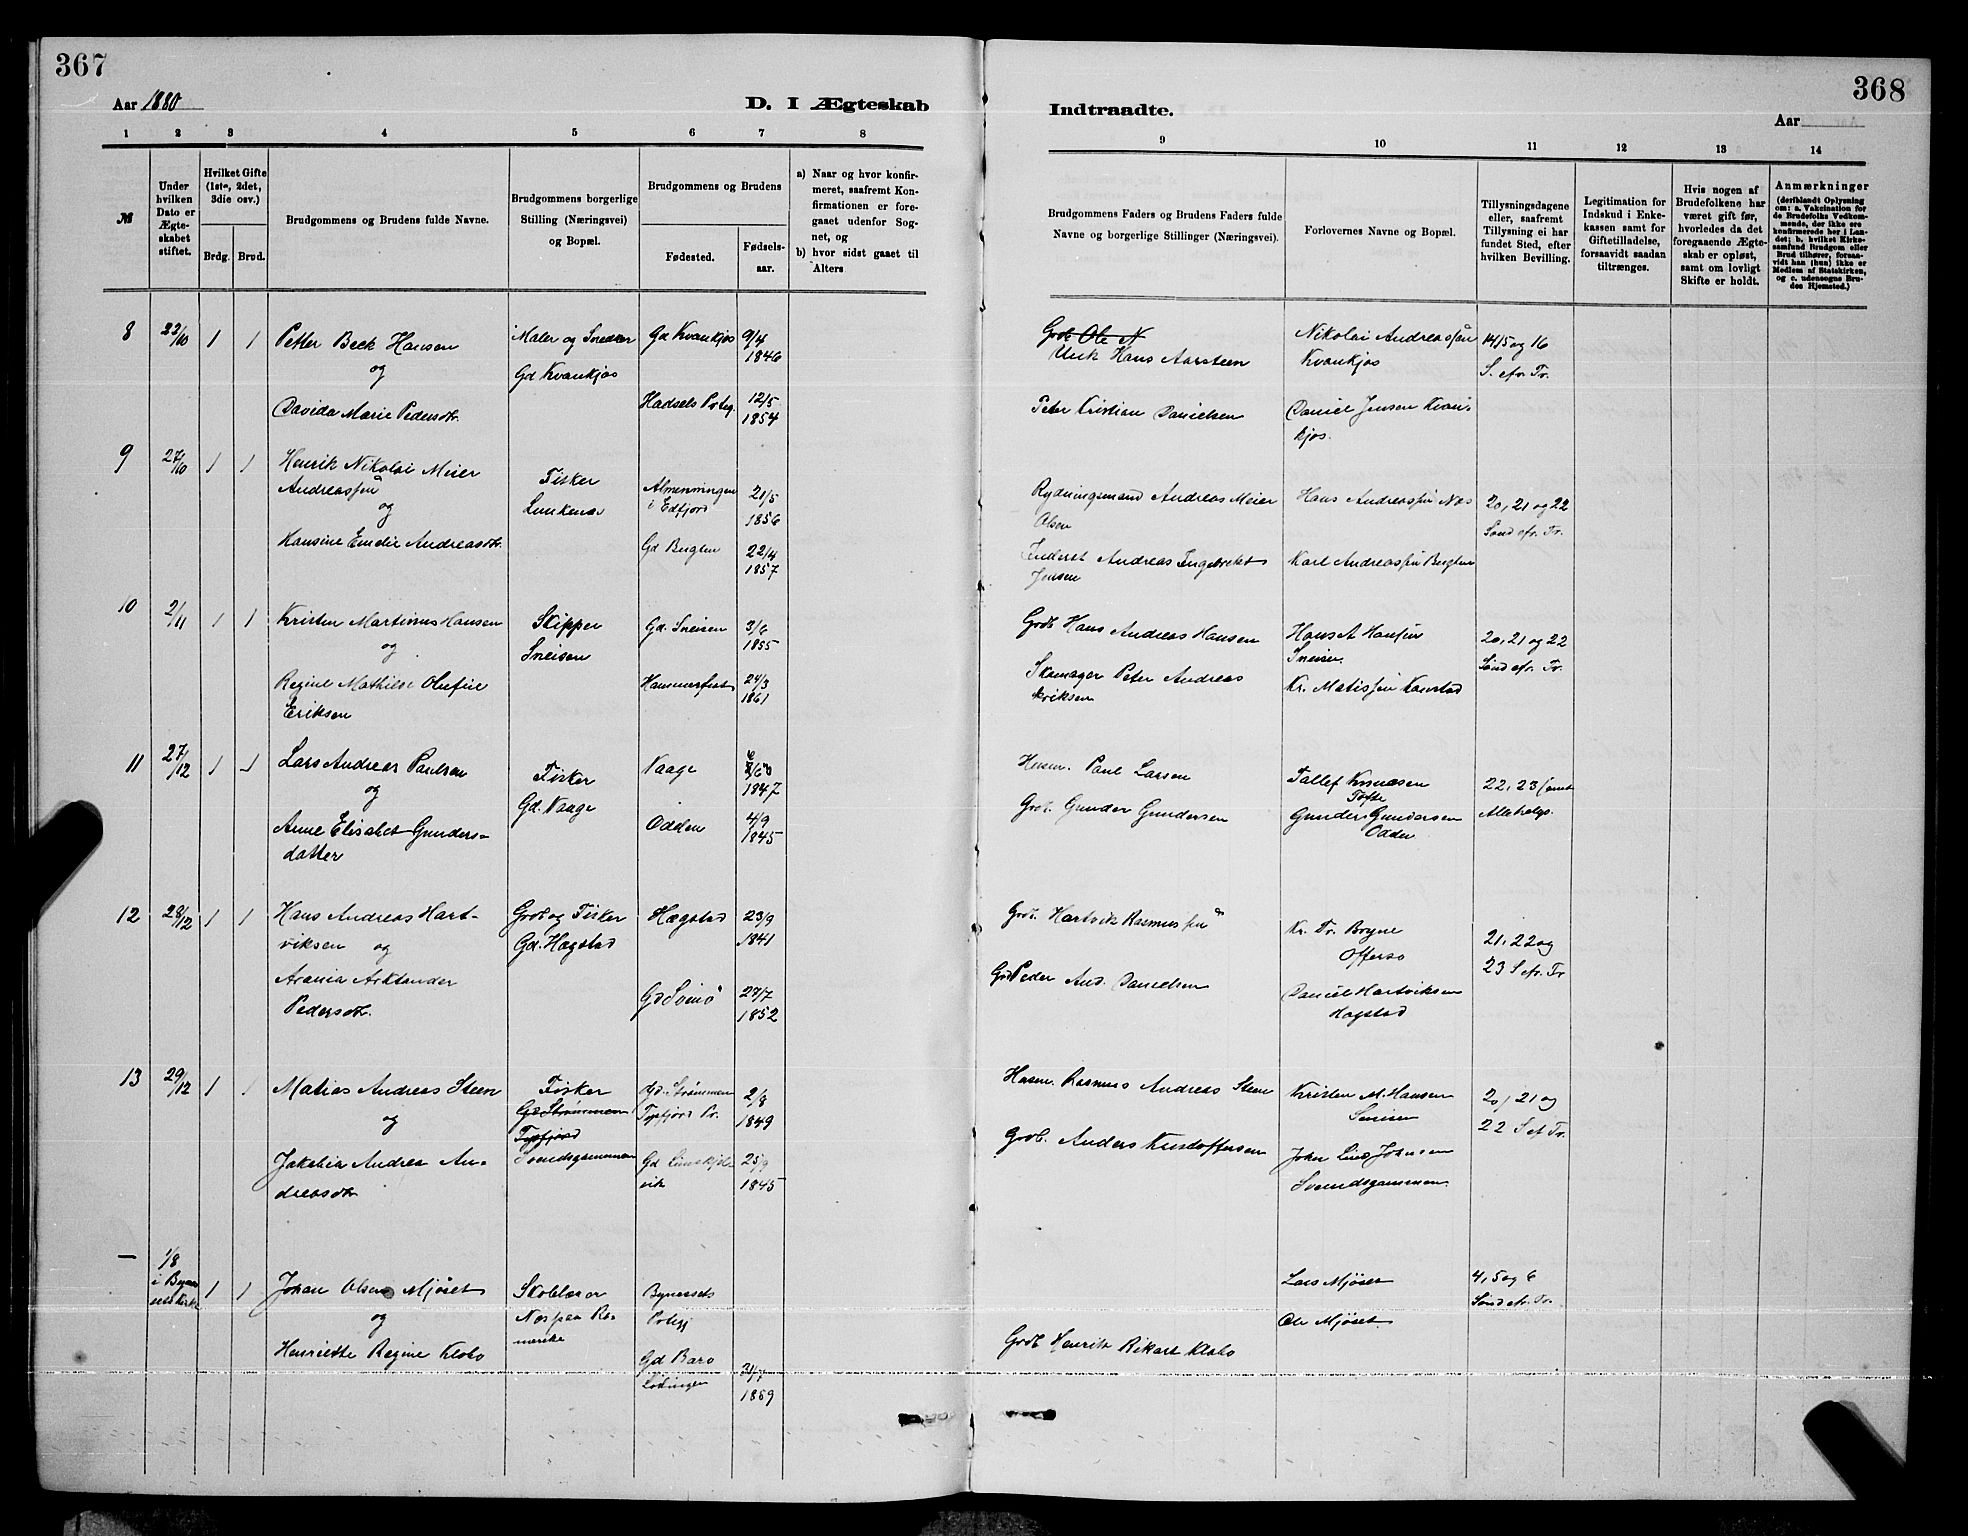 367
Aar 1880
D. I Ægteskab
1 2 3 4 5 6 7 8
№
Under hvilken Dato er Ægteskabet stiftet.
Hvilket Gifte (1ste, 2det, 3die osv.)
Brdg. Brud.
Brudgommens og Brudens fulde Navne.
Brudgommens borgerlige Stilling (Næringsvei) og Bopæl.
Brudgommens og Brudens
Fødested.
Fødselsaar.
a) Naar og hvor konfirmeret, saafremt Konfirmationen er foregaaet udenfor Sognet, og
b) hvor sidst gaaet til Alters
8 23/10 1 1 Petter Beck Hansen
og
Davida Marie Pedersdtr.
Maler og Snedker
Gd Kvankjos
Gd Kvankjos 9/4 1846
Hadsels Prteg. 12/5 1854
9 27/10 1 1 Henrik Nikolai Meier
Andreassen
og
Hansine Emelie Andreasdtr.
Fisker
Lunkenæs
Almenningen
i Edfjord
21/5 1856
Gd 22/4 1857
10 2/11 1 1 Kristen Martinus Hansen
og
Regine Mathilde Olufine
Eriksen
Skipper
Sneisen
Gd. Sneisen 3/6 1855
Hammerfest 24/3 1861
11 27/12 1 1 Lars Andreas Paulsen
og
Anne Elisabet Gunders-
datter
Fisker
Gd. Vaage
Vaage 1847
Odden 4/9 1845
12 28/12 1 1 Hans Andreas Hart-
viksen og
Arktander
Pedersdtr.
Grdb og Fisker
Gd. Hægstad
Hægstad 23/9 1841
Gd Svinø 27/7 1852
13 29/12 1 1 Matias Andreas Steen
og
Jakobia Andrea An-
dreasdtr.
Fisker
Gd Strømmen
Tysfjord
Svendsgammen
Gd. Strømmen
Tysfjord Pr.
2/8 1849
Gd
vik
25/9 1845
— 1/8
i Bynes-
sets Kirke
1 1 Johan Olsen Mjøset
og
Henriette Regine Klobo
Skolelærer
Næs paa Ro-
merike
Bynessets
Prtegj
Gd Barø
Lødingen
31/7
368
Indtraadte.
Aar
9 10 11 12 13 14
Brudgommens Faders og Brudens Faders fulde Navne og borgerlige Stillinger (Næringsvei).
Forlovernes Navne og Bopæl.
Tillysningsdagene eller, saafremt Tillysning ei har fundet Sted, efter hvilken Bevilling.
Legitimation for Indskud i Enkekassen samt for Giftetilladelse, forsaavidt saadan tiltrænges.
Hvis nogen af Brudefolkene har været gift før, hvorledes da det foregaaende Ægteskab er opløst, samt om lovligt Skifte er holdt.
Anmærkninger (deriblandt Oplysning om: a. Vakcination for de Brudefolks Vedkommende, der ikke ere konfirmerede her i Landet; b. hvilket Kirkesamfund Brudgom eller Brud tilhører, forsaavidt han (hun) ikke er Medlem af Statskirken, og c. udensogns Brudes Hjemsted.)
Grdb Ole N
Hans Aarsteen
Nikolai Andreassen
Kvankjos
14, 15 og 16
S. efr. Tr.
Peter Kristian Danielsen
Daniel Jensen Kvan-
kjos.
Rydningsmand Andreas Meier
Olsen
Hans Andreassen Næs
20, 21 og 22
Sønd efr. Tr.
Inderst Andreas Ingebrekt
Jensen
Karl Andreassen
Grdb Hans Andreas Hansen
Hans A Hansen
Sneisen
20, 21 og 22
Sønd efr. Tr.
Skomager Peter Andreas
Eriksen
Kr. Matissen Kanstad
Husm. Paul Larsen
Tallef Knudsen
Tofte
22, 23 samt
Allehelgs.
Grdb. Gunder Gundersen
Gunder Gundersen
Odden
Grdb. Hartvik Rasmussen
Kr. Fr. Brygne
Offersø
21, 22 og
23 S. efr. Tr
Grdb Peder And. Danielsen
Daniel Hartviksen
Hægstad
Husm. Rasmus Andreas Steen
Kristen M. Hansen
Sneisen
20, 21 og
22 S. ef Tr.
Grdb. Anders Kristoffersen
John Lind Johnsen
Svendsgammen.
Lars Mjøset
4, 5 og 6
Sønd efr. Tr.
Ole Mjøset.
Grdb Henrik Rikart Klobo